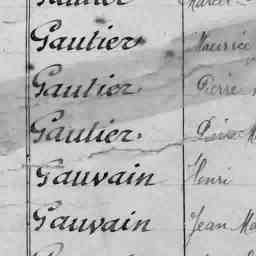 Gautier Maurice
Gautier. Pierre
Gautier. Pierre
Gauvain Henri
Gauvain Jean Ma